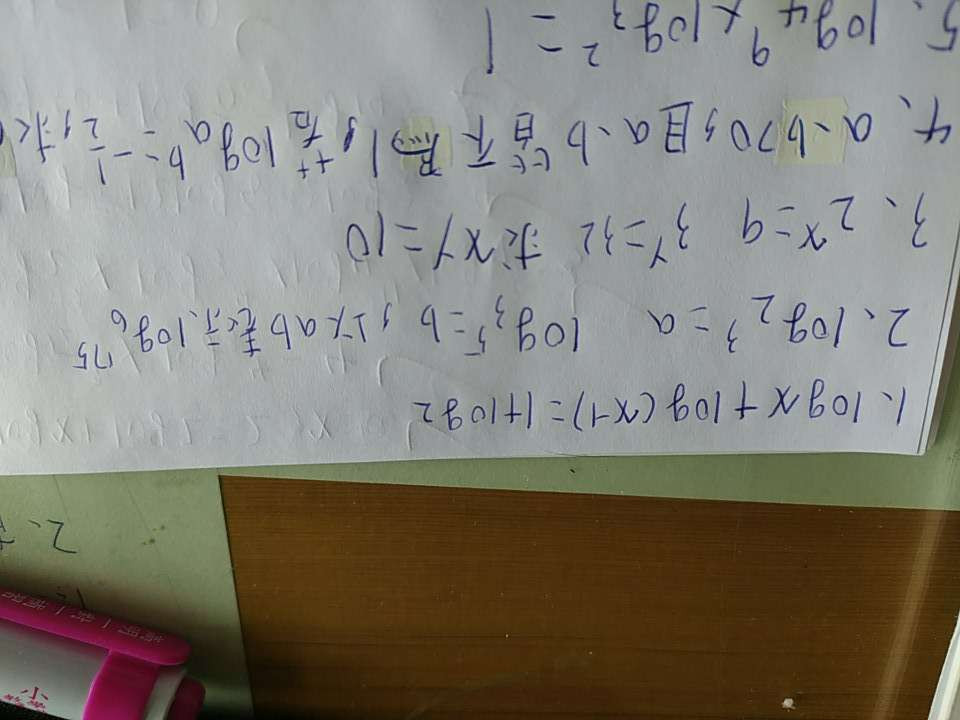 1、log x + log(x-1) = 1 + log 2
2、log₂3 = a log₃5 = b，以ab表示 log₆75
3、2ˣ=9 3ʸ=32 求xy=10
4、a、b>0，且a、b皆不為1，若 log a b = -1/2，求
5、log₄9 × log₃2 = 1
2、